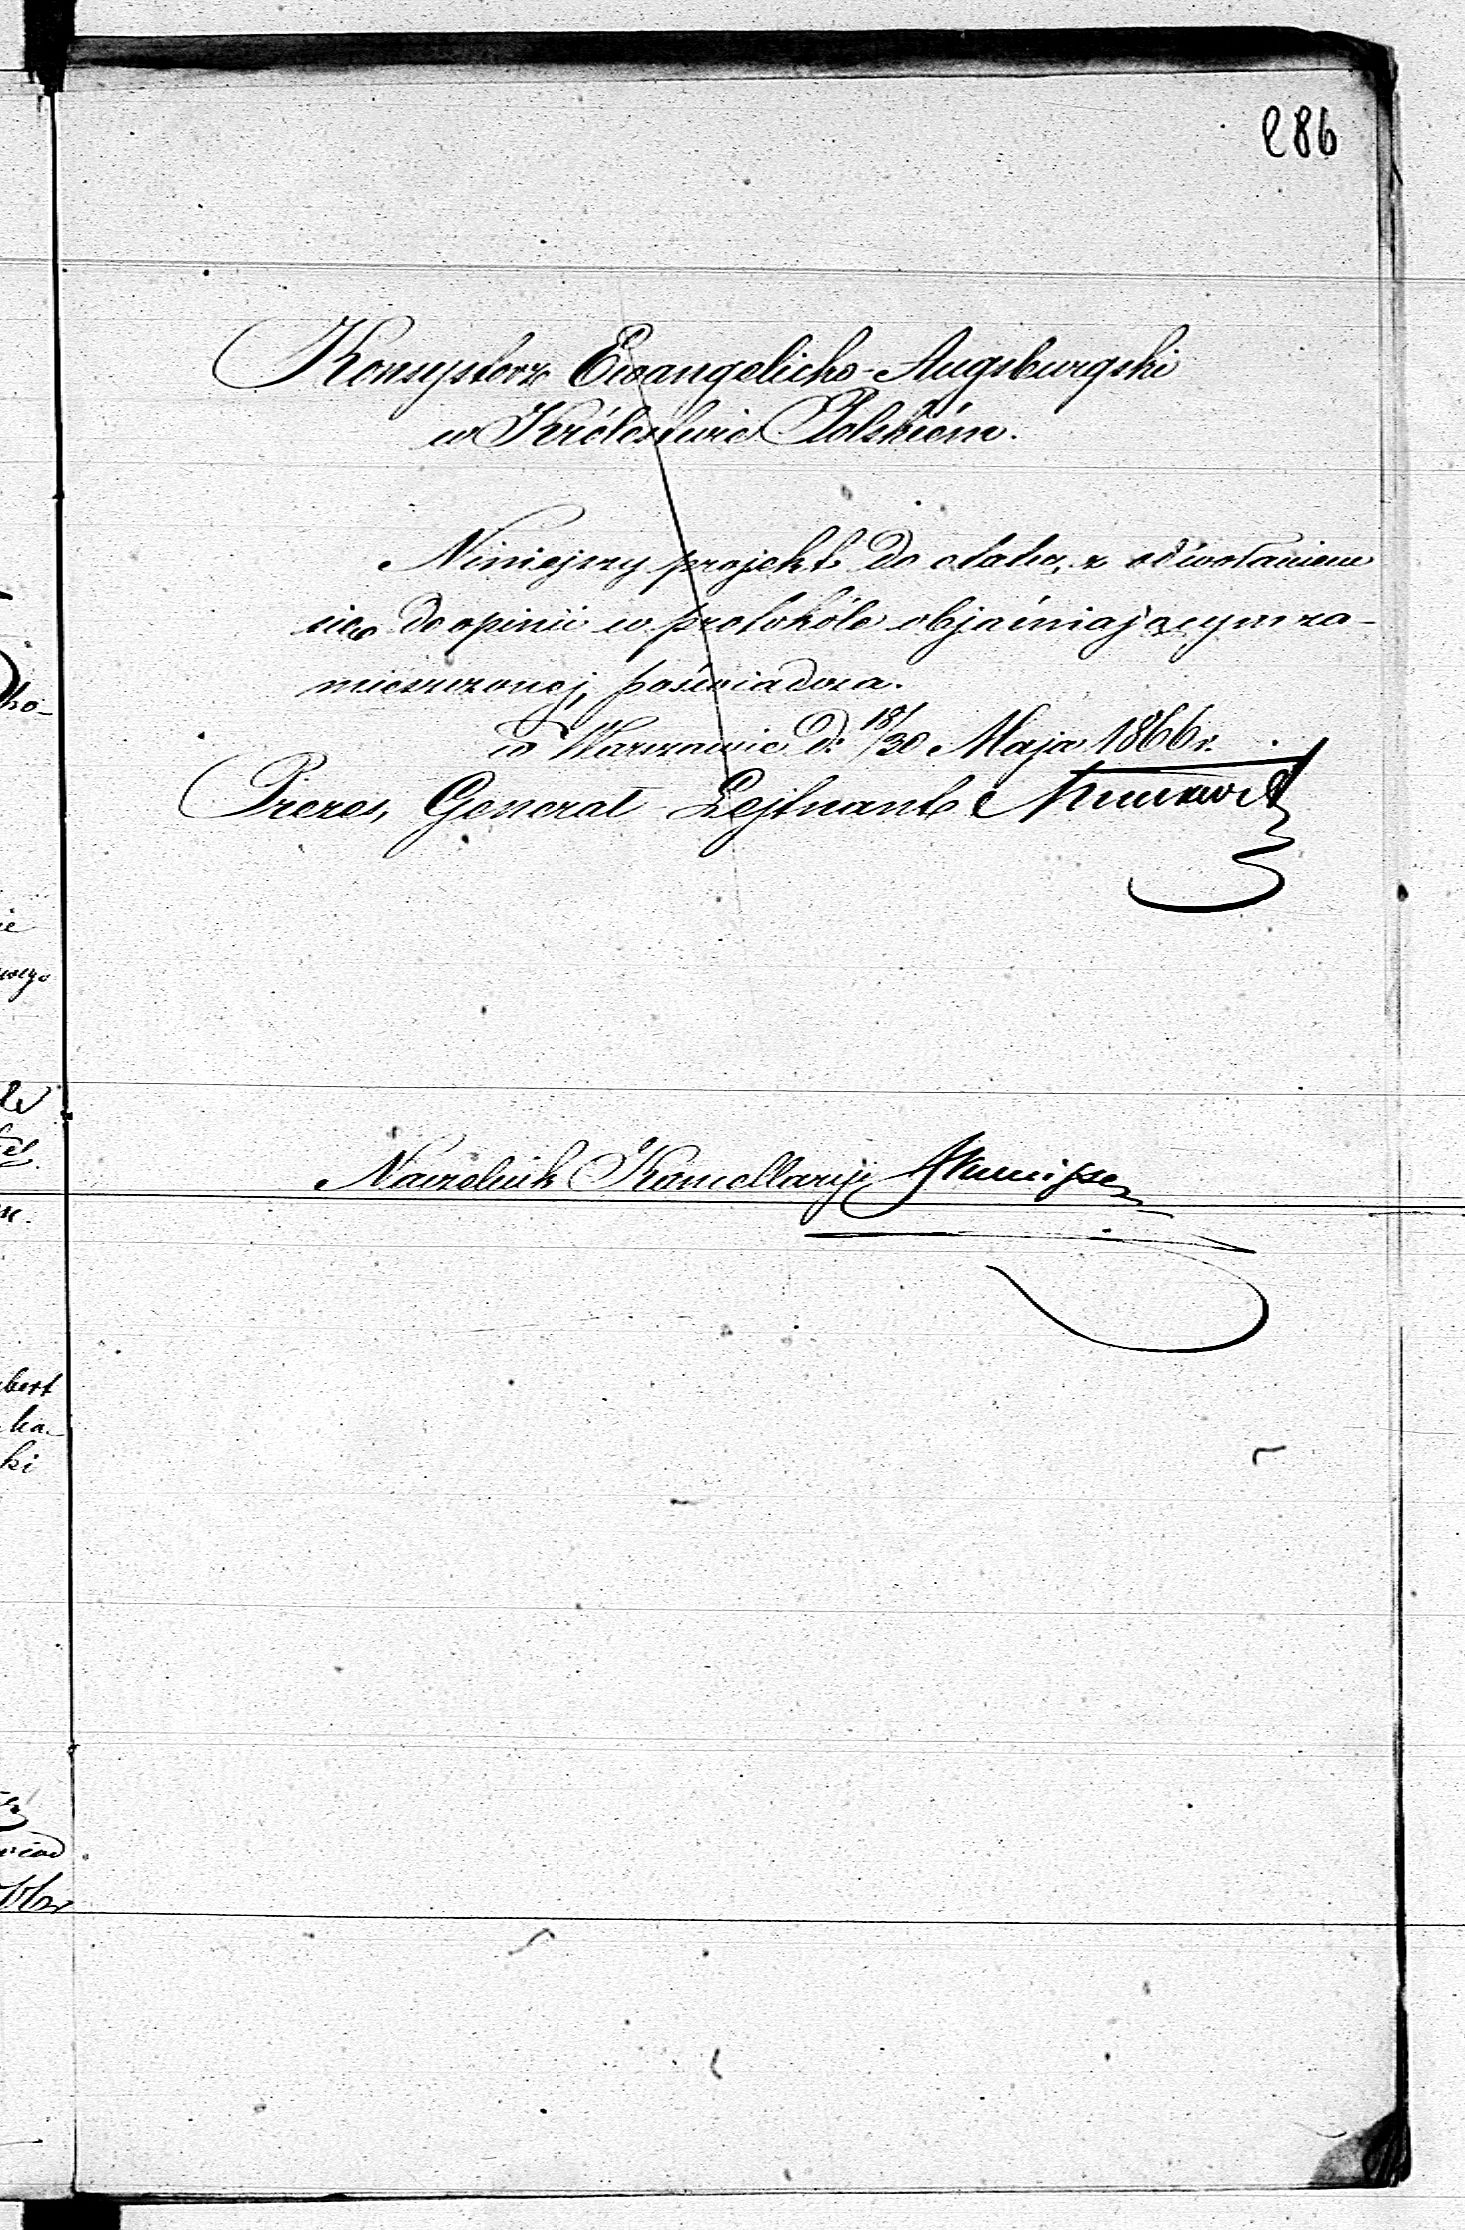 286
Konsystorz Ewangelicko-Augsburgski
w Królestwie Polskiém.
Niniejszy projekt do etatu, z odwołaniem
się do opinii w protokóle objaśniającym za-
mieszczonej, poświadcza.
w Warszawie d. 18/30 Maja 1866 r.
Prezes, Generał Lejtnant
Naczelnik Kancellaryi